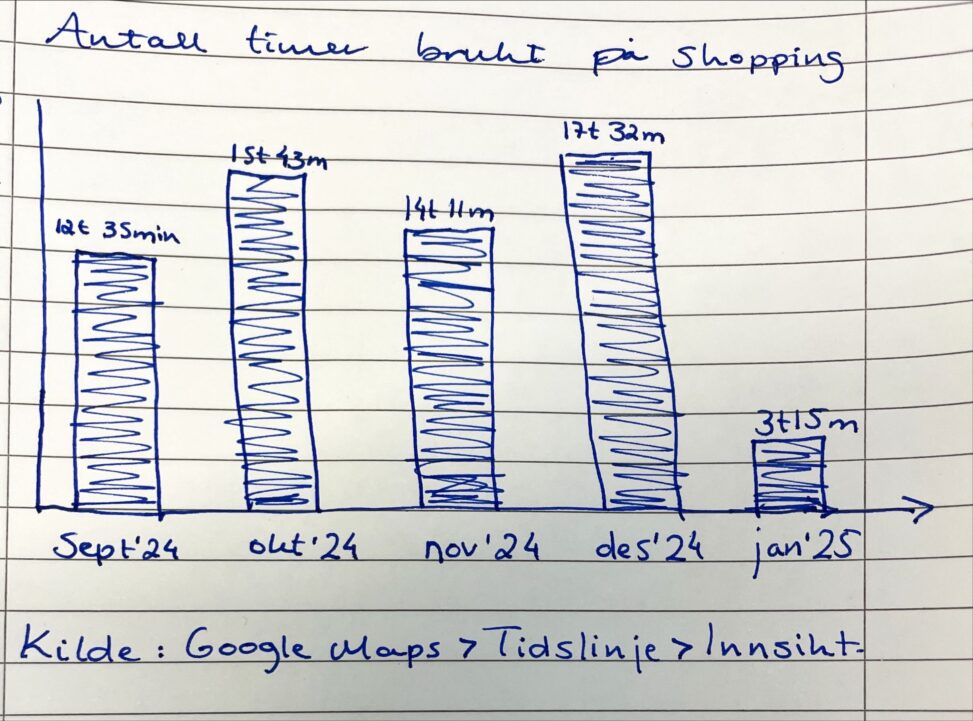 Antall timer brukt på shopping
17t 32m
15t 43m
14t 11m
12t 35min
3t15m
Sept'24 okt'24 nov'24 des'24 jan'25
Kilde: Google Maps > Tidslinje > Innsikt